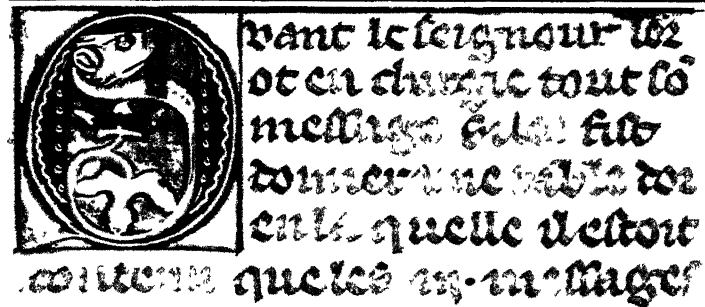 Quant le seignour lor
ot en chargie tout sõ
message fist
donner vne table dor
en la quelle il estoit
contenu que les messages